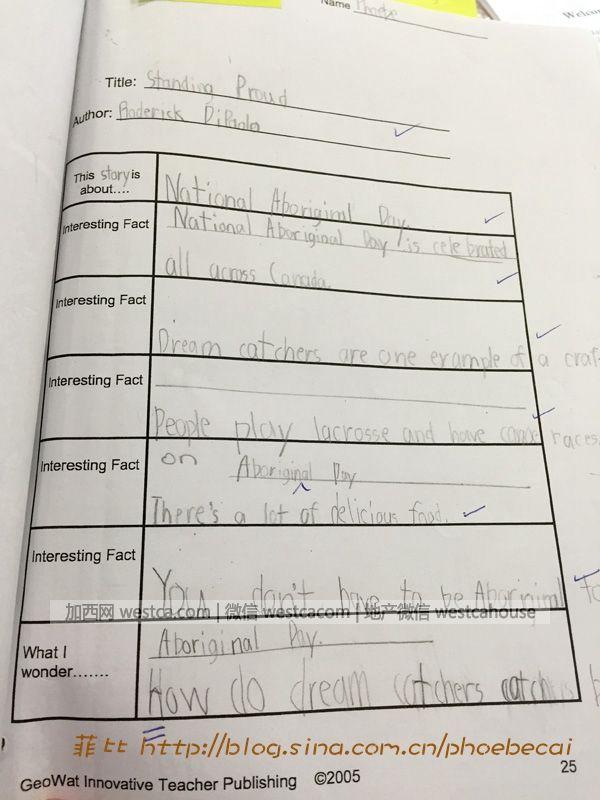 Name Phoebe
Welcom
Title: Standing Proud
Author: Roderick DiPaolo
This story is about....
National Aboriginal Day.
Interesting Fact
National Aboriginal Day is celebrated
all across Canada.
Interesting Fact
Dream catchers are one example of a craf
Interesting Fact
People play lacrosse and have canoe races.
Interesting Fact
on Aboriginal Day
There's a lot of delicious food.
Interesting Fact
You don't have to be Aboriginal to
加西网 westca.com | 微信 westcacom | 地产微信 westcahouse
What I wonder.......
Aboriginal Day.
How do dream catchers catch
菲比 http://blog.sina.com.cn/phoebecai
GeoWat Innovative Teacher Publishing ©2005
25